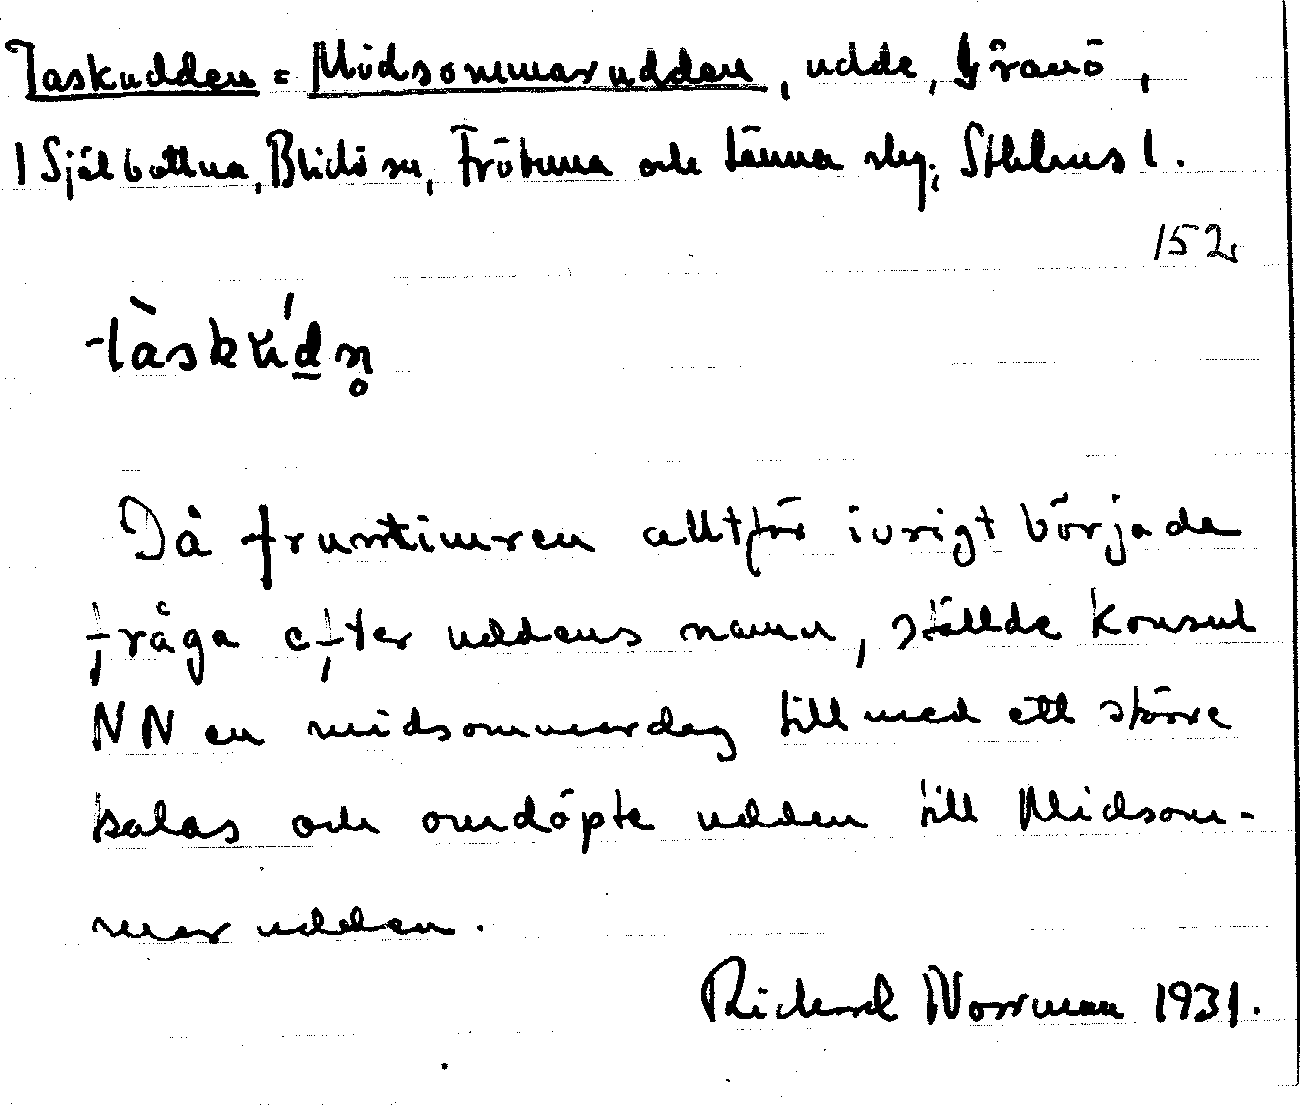 Taskudden = Midsommarudden, udde, Granö,
1 Själbottna, Blidö sn, Frötuna och Länna skg; Sthlms l.
152
tàskúdn̥
Då fruntimren alltför ivrigt började
fråga efter uddens namn, ställde konsul
NN en midsommardag till med ett större
kalas och omdöpte udden till Midsom-
mar udden.
Richard Norrman 1931.